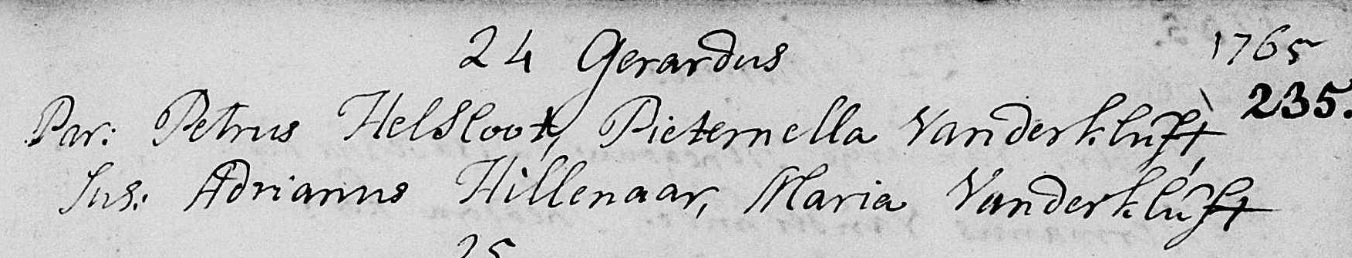 24 Gerardus 1765
235.
Par: Petrus Helsloot, Pieternella Vanderkluft,
Sus: Adrianus Hillenaar, Maria Vanderkluft
25